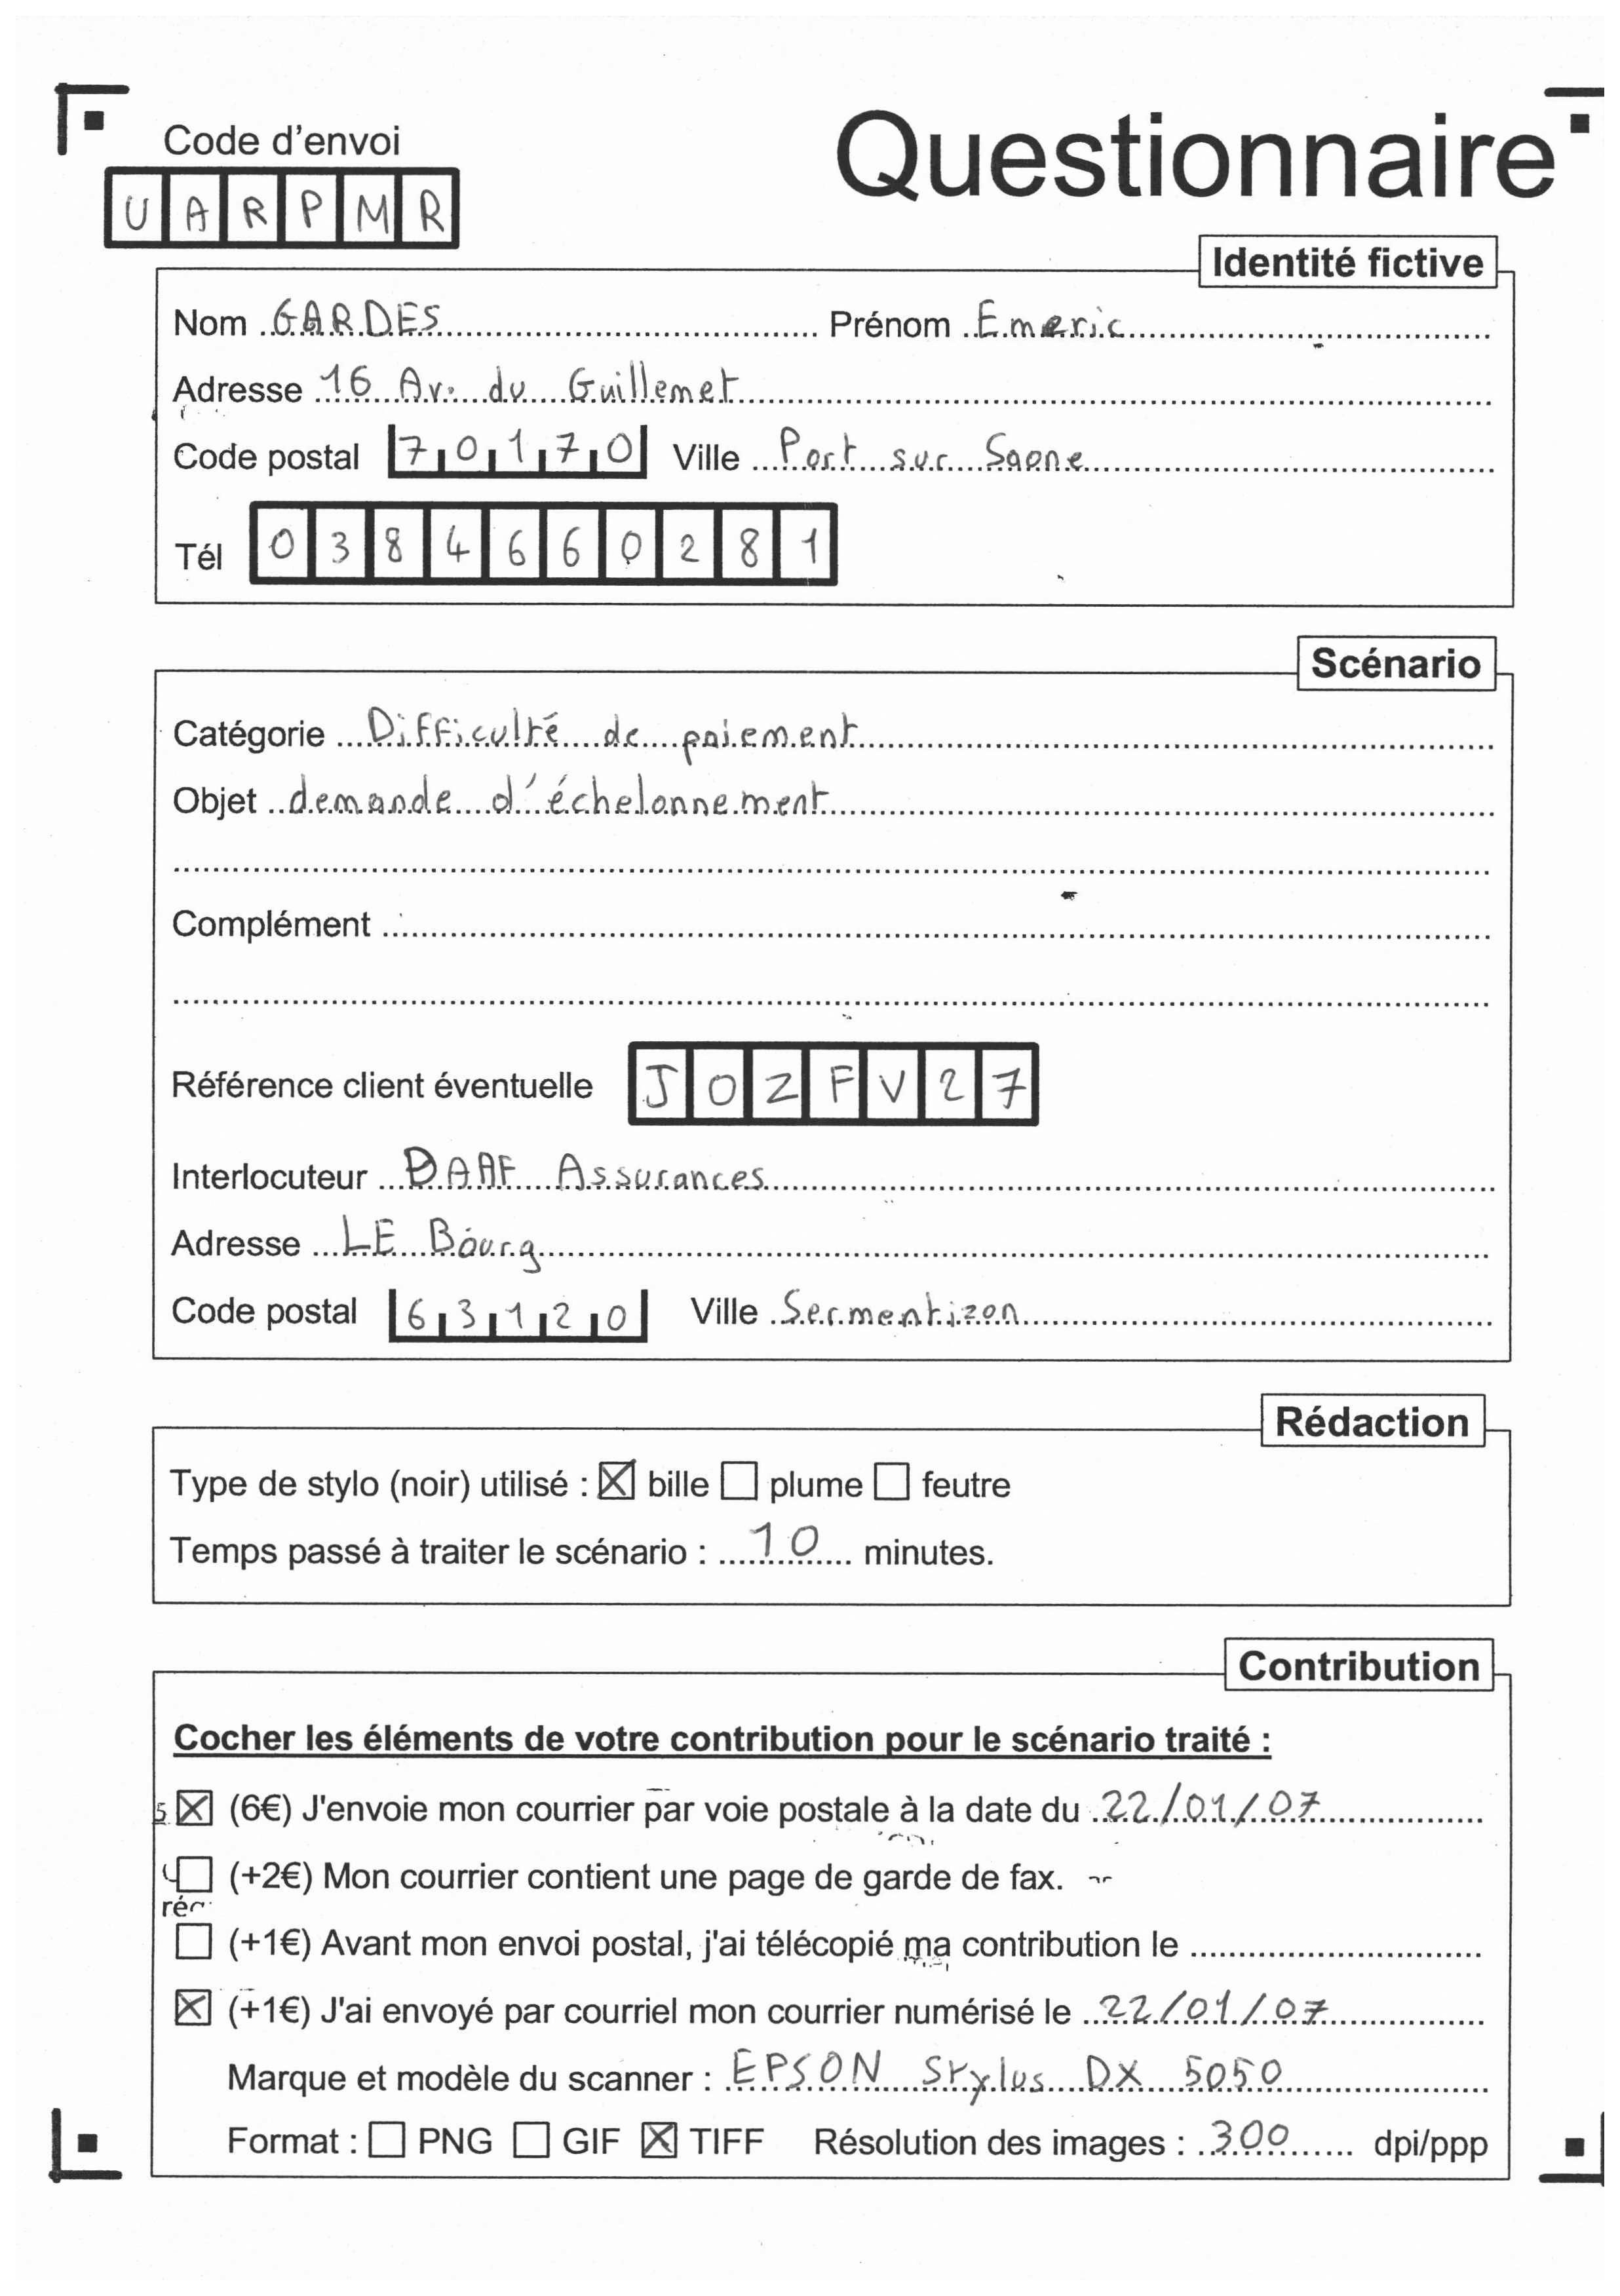 Code d'envoi
Questionnaire
U A R P M R
Identité fictive
Nom GARDES Prénom Emeric
Adresse 16 Av. du Guillemet
Code postal 70170 Ville Port sur Saone
Tél 0384660281
Scénario
Catégorie Difficulté de paiement
Objet demande d'échelonnement
Complément
Référence client éventuelle J O Z F V 2 7
Interlocuteur DAAF Assurances
Adresse LE Bourg
Code postal 63120 Ville Sermentizon
Rédaction
Type de stylo (noir) utilisé : ☒ bille ☐ plume ☐ feutre
Temps passé à traiter le scénario : 10 minutes.
Contribution
Cocher les éléments de votre contribution pour le scénario traité :
☒ (6€) J'envoie mon courrier par voie postale à la date du 22/01/07
☐ (+2€) Mon courrier contient une page de garde de fax.
☐ (+1€) Avant mon envoi postal, j'ai télécopié ma contribution le
☒ (+1€) J'ai envoyé par courriel mon courrier numérisé le 22/01/07
Marque et modèle du scanner : EPSON Stylus DX 5050
Format : ☐ PNG ☐ GIF ☒ TIFF Résolution des images : 300 dpi/ppp